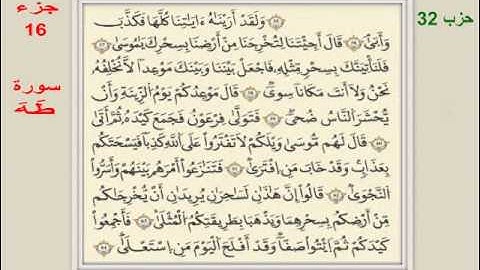 جزء
16
سورة
طه
حزب 32
وَلَقَدْ أَرَيْنَاهُ ءَايَاتِنَا كُلَّهَا فَكَذَّبَ
وَأَبَىٰ قَالَ أَجِئْتَنَا لِتُخْرِجَنَا مِنْ أَرْضِنَا بِسِحْرِكَ يَامُوسَىٰ
فَلَنَأْتِيَنَّكَ بِسِحْرٍ مِّثْلِهِ فَاجْعَلْ بَيْنَنَا وَبَيْنَكَ مَوْعِدًا لَّا نُخْلِفُهُ
نَحْنُ وَلَا أَنتَ مَكَانًا سِوًى قَالَ مَوْعِدُكُمْ يَوْمُ الزِّينَةِ وَأَنْ
يُحْشَرَ النَّاسُ ضُحًى فَتَوَلَّىٰ فِرْعَوْنُ فَجَمَعَ كَيْدَهُ ثُمَّ أَتَىٰ
قَالَ لَهُم مُّوسَىٰ وَيْلَكُمْ لَا تَفْتَرُوا عَلَى اللَّهِ كَذِبًا فَيَسْحَتَكُم
بِعَذَابٍ وَقَدْ خَابَ مَنِ افْتَرَىٰ فَتَنَازَعُوا أَمْرَهُم بَيْنَهُمْ وَأَسَرُّوا
النَّجْوَىٰ قَالُوا إِنَّ هَاذَانِ لَسَاحِرَانِ يُرِيدَانِ أَن يُخْرِجَاكُم
مِّنْ أَرْضِكُم بِسِحْرِهِمَا وَيَذْهَبَا بِطَرِيقَتِكُمُ الْمُثْلَىٰ فَأَجْمِعُوا
كَيْدَكُمْ ثُمَّ ائْتُوا صَفًّا وَقَدْ أَفْلَحَ الْيَوْمَ مَنِ اسْتَعْلَىٰ